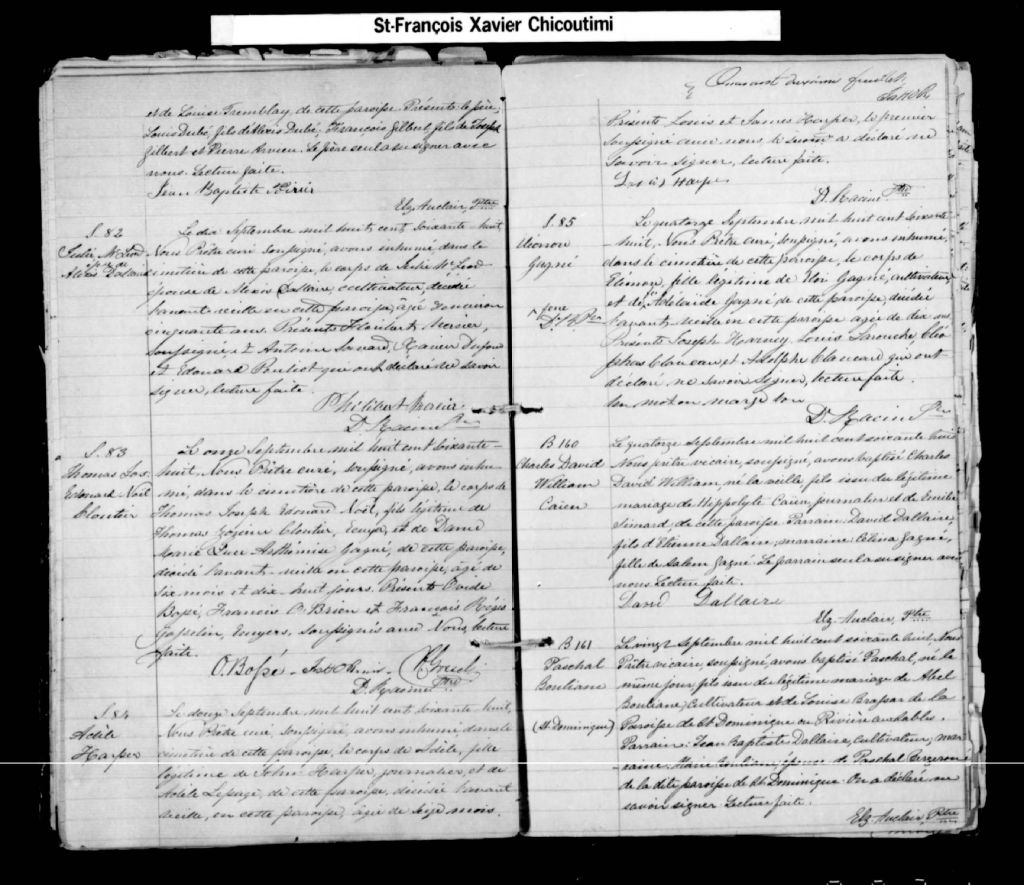 St-François Xavier Chicoutimi
et de Louise Tremblay, de cette paroisse. Présents le père,
Louis Dubé, fils de Alexis Dubé, François Gilbert fils de Joseph
Gilbert et Pierre. Le père seul a su signer avec
nous. Lecture faite.
Jean Baptiste
Elz. Auclair, Ptre
S. 82
Julie McLeod
épse de
Alexis Dallaire
Le dix Septembre mil huit cent soixante-huit,
Nous Prêtre curé soussigné, avons inhumé dans le
cimetière de cette paroisse, le corps de Julie McLeod
épouse de Alexis Dallaire, cultivateur, décédée
l'avant-veille en cette paroisse, âgée d'environ
cinquante ans. Présents Philibert Mercier,
soussigné et Antoine, Xavier Dufour
et Edouard Pouliot qui ont déclaré ne savoir
signer, lecture faite.
Philibert Mercier
D. Racine Ptre
S. 83
Thomas Jos.
Edouard Noël
Cloutier
Le onze Septembre mil huit cent soixante-
huit, Nous Prêtre curé, soussigné, avons inhu-
mé, dans le cimetière de cette paroisse, le corps de
Thomas Joseph Edouard Noël, fils légitime de
Thomas Zozime Cloutier, Ecuyer, et de Dame
Marie Luce Arthémise Gagné, de cette paroisse,
décédé l'avant-veille en cette paroisse, âgé de
six mois et dix-huit jours. Présents Ovide
Bossé, François O'Brien et François Régis
Gosselin, Ecuyers, soussignés avec Nous, lecture
faite.
O. Bossé
D. Racine Ptre
S. 84
Adèle
Harper
Le douze Septembre mil huit cent soixante huit,
Nous Prêtre curé, soussigné, avons inhumé dans le
cimetière de cette paroisse, le corps de Adèle, fille
légitime de John Harper, journalier, et de
Adèle Lepage, de cette paroisse, décédée l'avant
veille, en cette paroisse, âgée de seize mois.
Quarant deuxième feuillet,
Présents Louis et James Harper, le premier
soussigné avec nous, le second a déclaré ne
savoir signer, lecture faite.
Louis Harper
D. Racine Ptre
S. 85
Eléonore
Gagné
Le quatorze Septembre mil huit cent soixante
huit, Nous Prêtre curé, soussigné, avons inhumé,
dans le cimetière de cette paroisse, le corps de
Eléonore, fille légitime de Eloi Gagné, cultivateur,
et de Adelaide Gagné de cette paroisse, décédée
l'avant-veille en cette paroisse âgée de dix ans
Présents Joseph Harvey, Louis Larouche, Cléo-
phas Claveau, et Adolphe Claveau qui ont
déclaré ne savoir signer, lecture faite.
Un mot en marge bon
D. Racine Ptre
B 160
Charles David
William
Caien
Le quatorze Septembre mil huit cent soixante huit
Nous prêtre vicaire, soussigné, avons baptisé Charles
David William, né la veille fils issu du légitime
mariage de Hippolyte Caien journalier et de Emilie
Simard, de cette paroisse Parrain David Dallaire,
fils d'Etienne Dallaire, marraine Célina Gagné,
fille de Salem Gagné. Le parrain seul a su signer avec
nous Lecture faite.
David Dallaire
Elz. Auclair, Ptre
B 161
Paschal
Bouliane
(St Dominique)
Le vingt Septembre mil huit cent soixante huit Nous
Prêtre vicaire, soussigné, avons baptisé Paschal, né le
même jour fils issu du légitime mariage de Abel
Bouliane, Cultivateur et de Louise de la
Paroisse de St Dominique ou Rivière aux Sables.
Parrain: Jean Baptiste Dallaire, cultivateur; mar-
raine: Marie Bouliane, épouse de Paschal Bergeron
de la dite paroisse de St Dominique. On a déclaré ne
savoir signer Lecture faite.
Elz. Auclair, Ptre